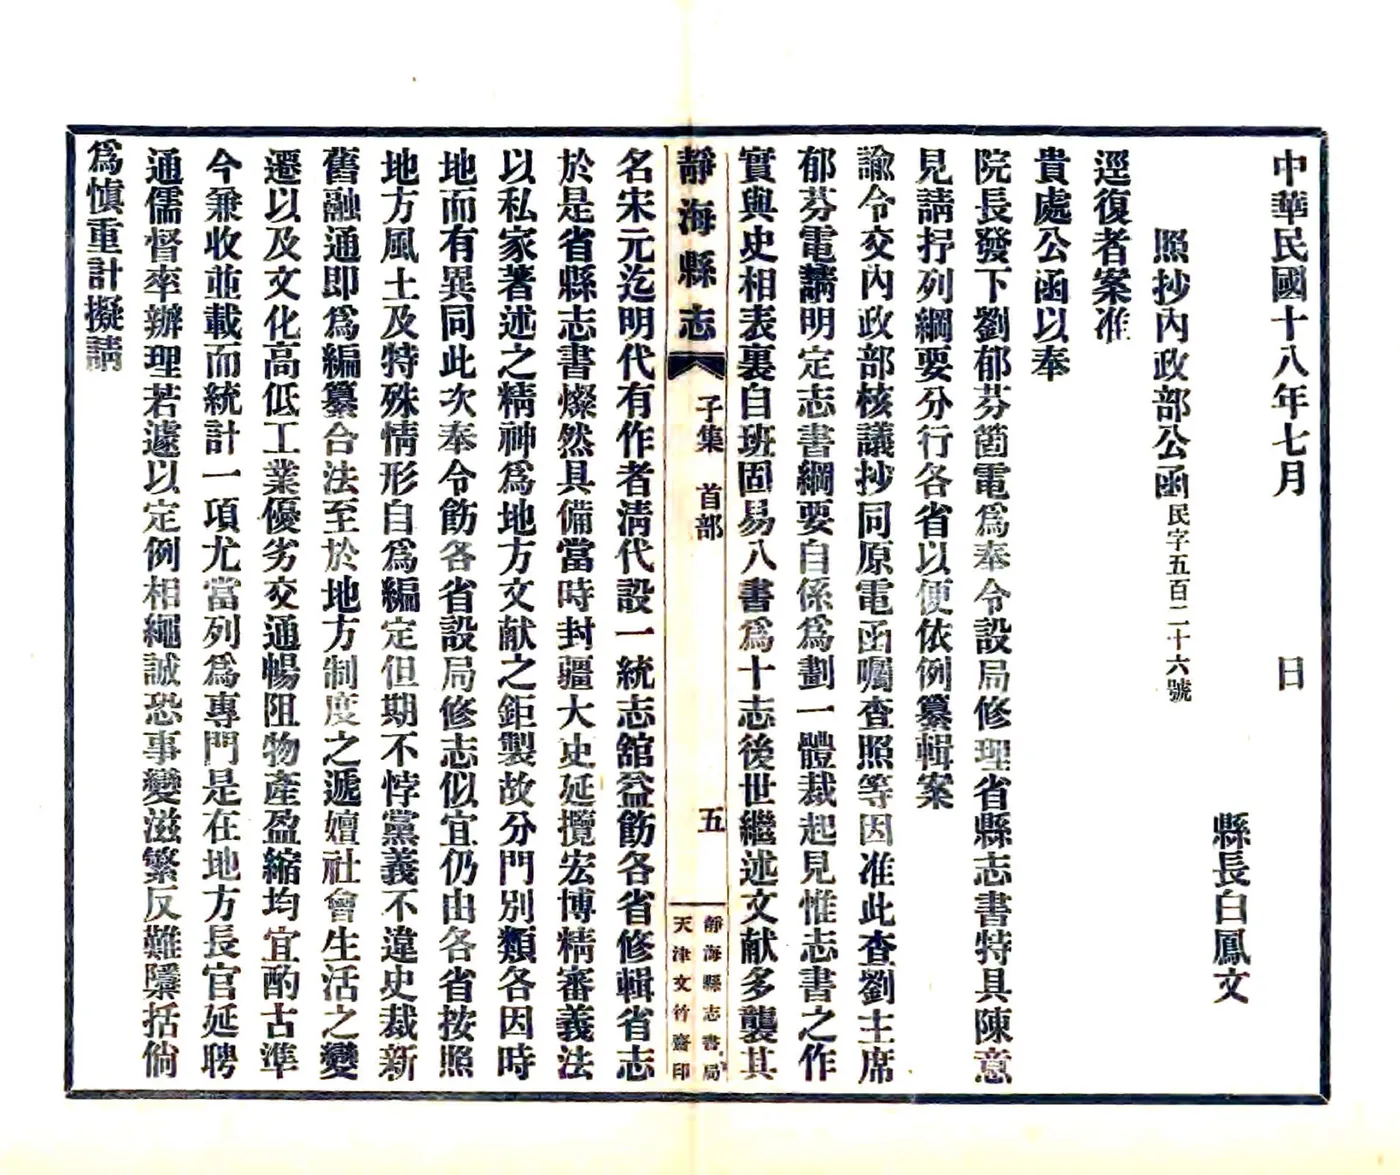 中華民國十八年七月　　日
縣長白鳳文
照抄內政部公函民字五百二十六號
逕復者案准
貴處公函以奉
院長發下劉郁芬箇電爲奉令設局修理省縣志書特具陳意
見請抒列綱要分行各省以便依例纂輯案
諭令交內政部核議抄同原電函囑查照等因准此查劉主席
郁芬電請明定志書綱要自係爲劃一體裁起見惟志書之作
實與史相表裏自班固易八書爲十志後世繼述文献多襲其
靜海縣志
子集　首部
五
靜海縣志書局
天津文竹齋印
名宋元迄明代有作者淸代設一統志舘益飭各省修輯省志
於是省縣志書燦然具備當時封疆大史延攬宏博精審義法
以私家著述之精神爲地方文献之鉅製故分門別類各因時
地而有異同此次奉令飭各省設局修志似宜仍由各省按照
地方風土及特殊情形自爲編定但期不悖黨義不違史裁新
舊融通即爲編纂合法至於地方制度之遞嬗社會生活之變
遷以及文化高低工業優劣交通暢阻物產盈縮均宜酌古準
今兼收並載而統計一項尤當列爲專門是在地方長官延聘
通儒督率辦理若遽以定例相繩誠恐事變滋繁反難檃括倘
爲愼重計擬請